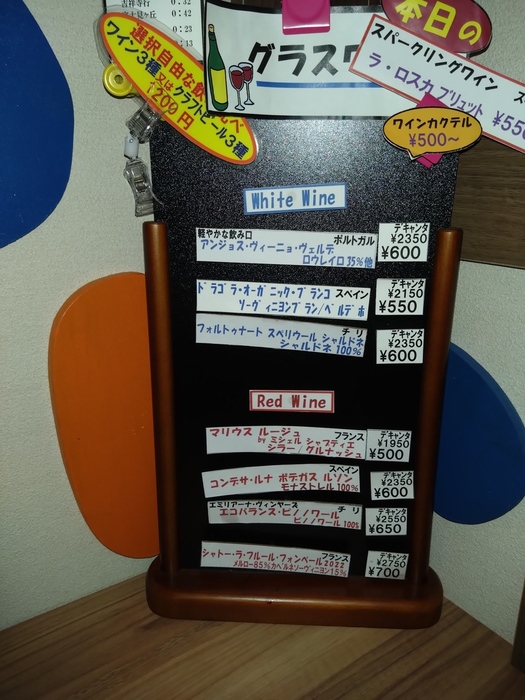 吉祥寺行 0:32
見ヶ丘 0:42
0:23
0:13
選択自由な飲み比べ
ワイン3種又はクラフトビール3種
1200円
グラスワ
本日の
スパークリングワイン ス
ラ・ロスカ ブリュット ¥550
ワインカクテル
¥500~
White Wine
軽やかな飲み口 ポルトガル
アンジョス・ヴィーニョ・ヴェルデ
ロウレイロ35%他
デキャンタ
¥2350
¥600
ドラゴラ・オーガニック・ブランコ スペイン
ソーヴィニヨンブラン/ベルデホ
デキャンタ
¥2150
¥550
フォルトゥナート スペリウール シャルドネ チリ
シャルドネ 100%
デキャンタ
¥2350
¥600
Red Wine
マリウス ルージュ フランス
by ミシェル シャプティエ
シラー/グルナッシュ
デキャンタ
¥1950
¥500
スペイン
コンデサ・ルナ ボデガス ルソン
モナストレル100%
デキャンタ
¥2350
¥600
エミリアーナ・ヴィンヤーズ チリ
エコバランス・ピノノワール
ピノノワール 100%
デキャンタ
¥2550
¥650
シャトー・ラ・フルール・フォンペール2022 フランス
メルロー85%カベルネソーヴィニヨン15%
デキャンタ
¥2750
¥700